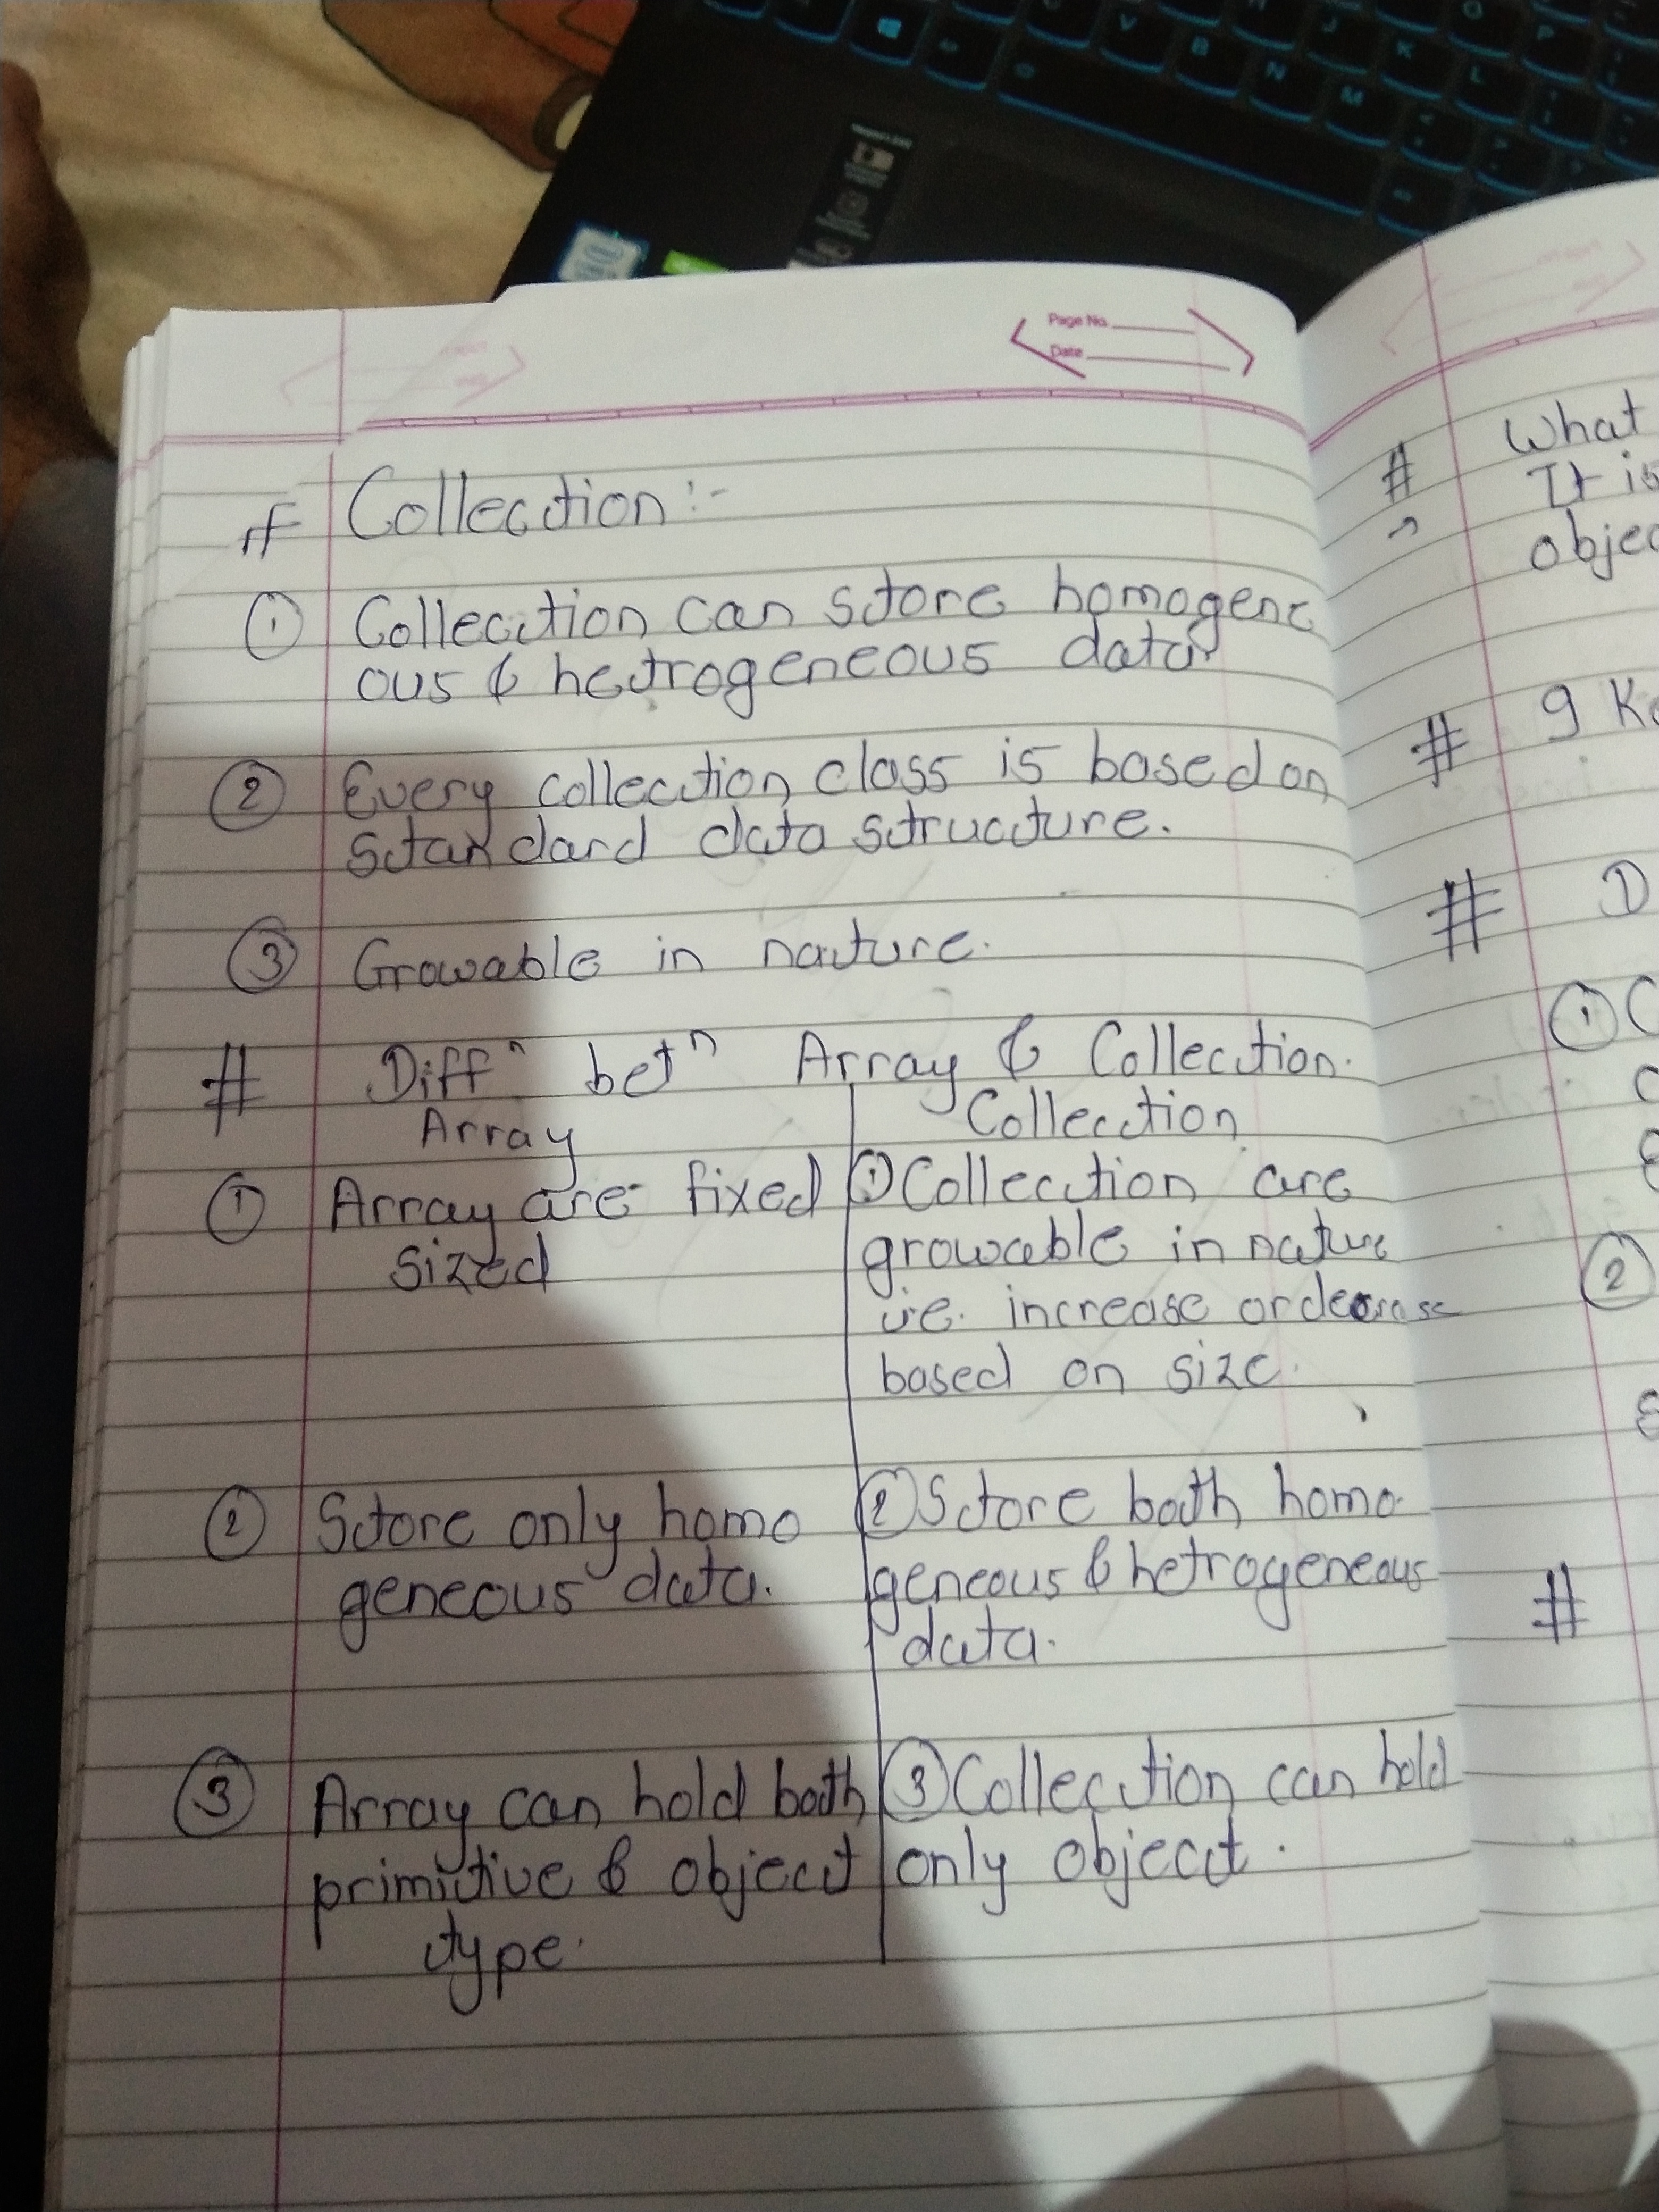 Page No.
Date
# Collection :-
① Collection can store homogene
ous & hetrogeneous data
② Every collection class is based on
standard data structure.
③ Growable in nature.
# Diffⁿ betⁿ Array & Collection.
Array
Collection
① Array are fixed
sized
① Collection are
growable in nature
i.e. increase or decrease
based on size.
② Store only homo
geneous data.
② Store both homo
geneous & hetrogeneous
data.
③ Array can hold both
primitive & object
type.
③ Collection can hold
only object.
# What
It is
objec
# 9 Ke
# D
① C
②
#